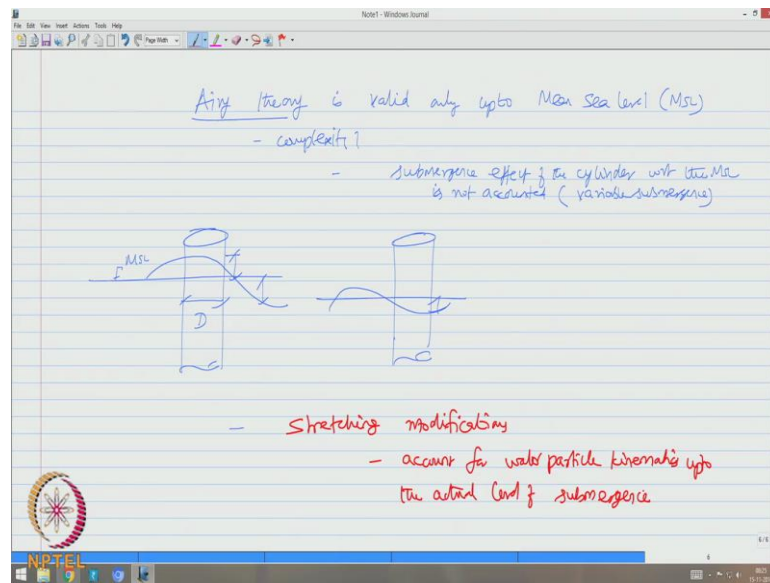 Note1 - Windows Journal
File Edit View Insert Actions Tools Help
Page Width
Airy theory is valid only upto Mean Sea level (MSL)
- complexity 1
- submergence effect of the cylinder wrt the MSL
is not accounted (variable submergence)
MSL
D
- Stretching modifications
- account for water particle kinematics upto
the actual level of submergence
NPTEL
6/6
6